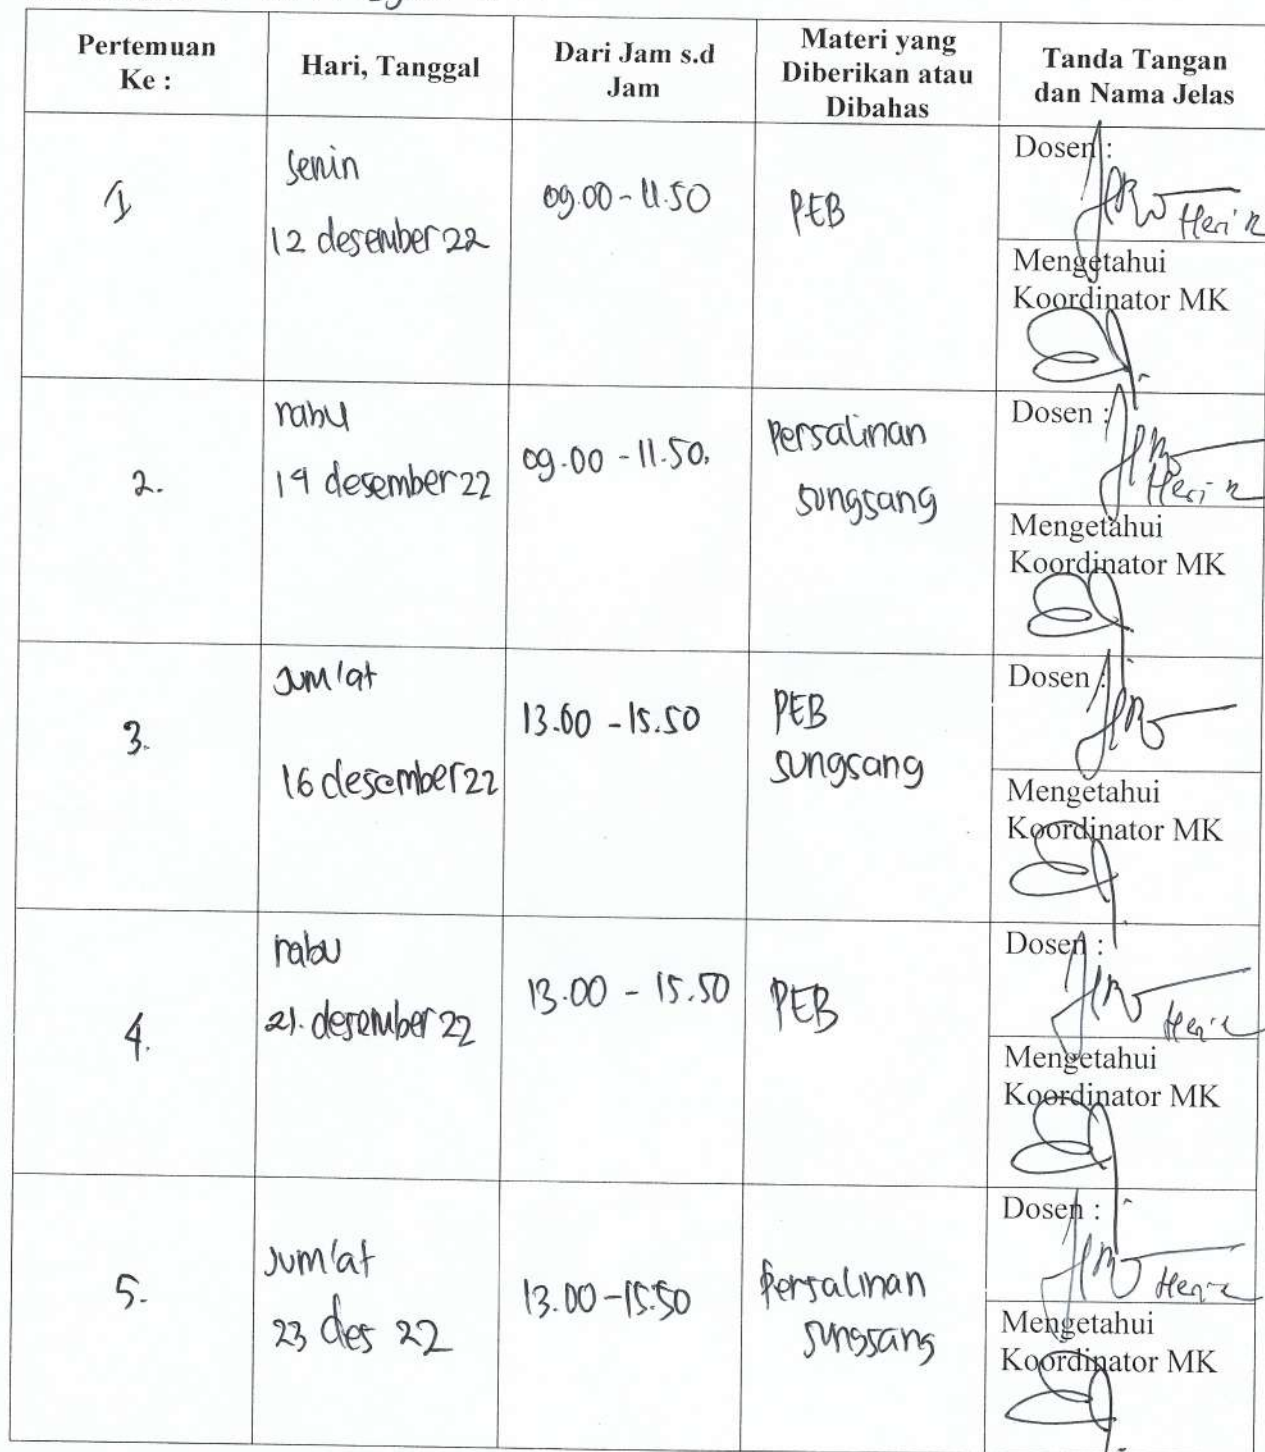 Pertemuan
Ke :
Hari, Tanggal
Dari Jam s.d
Jam
Materi yang
Diberikan atau
Dibahas
Tanda Tangan
dan Nama Jelas
1
senin
12 desember 22
09.00 - 11.50
PEB
Dosen :
Heri R
Mengetahui
Koordinator MK
2.
rabu
14 desember 22
09.00 - 11.50.
Persalinan
sungsang
Dosen :
Heri R
Mengetahui
Koordinator MK
3.
Jum'at
16 desember 22
13.00 - 15.50
PEB
sungsang
Dosen :
Mengetahui
Koordinator MK
4.
rabu
21. desember 22
13.00 - 15.50
PEB
Dosen :
Heri R
Mengetahui
Koordinator MK
5.
Jum'at
23 des 22
13.00 - 15.50
Persalinan
sungsang
Dosen :
Heri R
Mengetahui
Koordinator MK